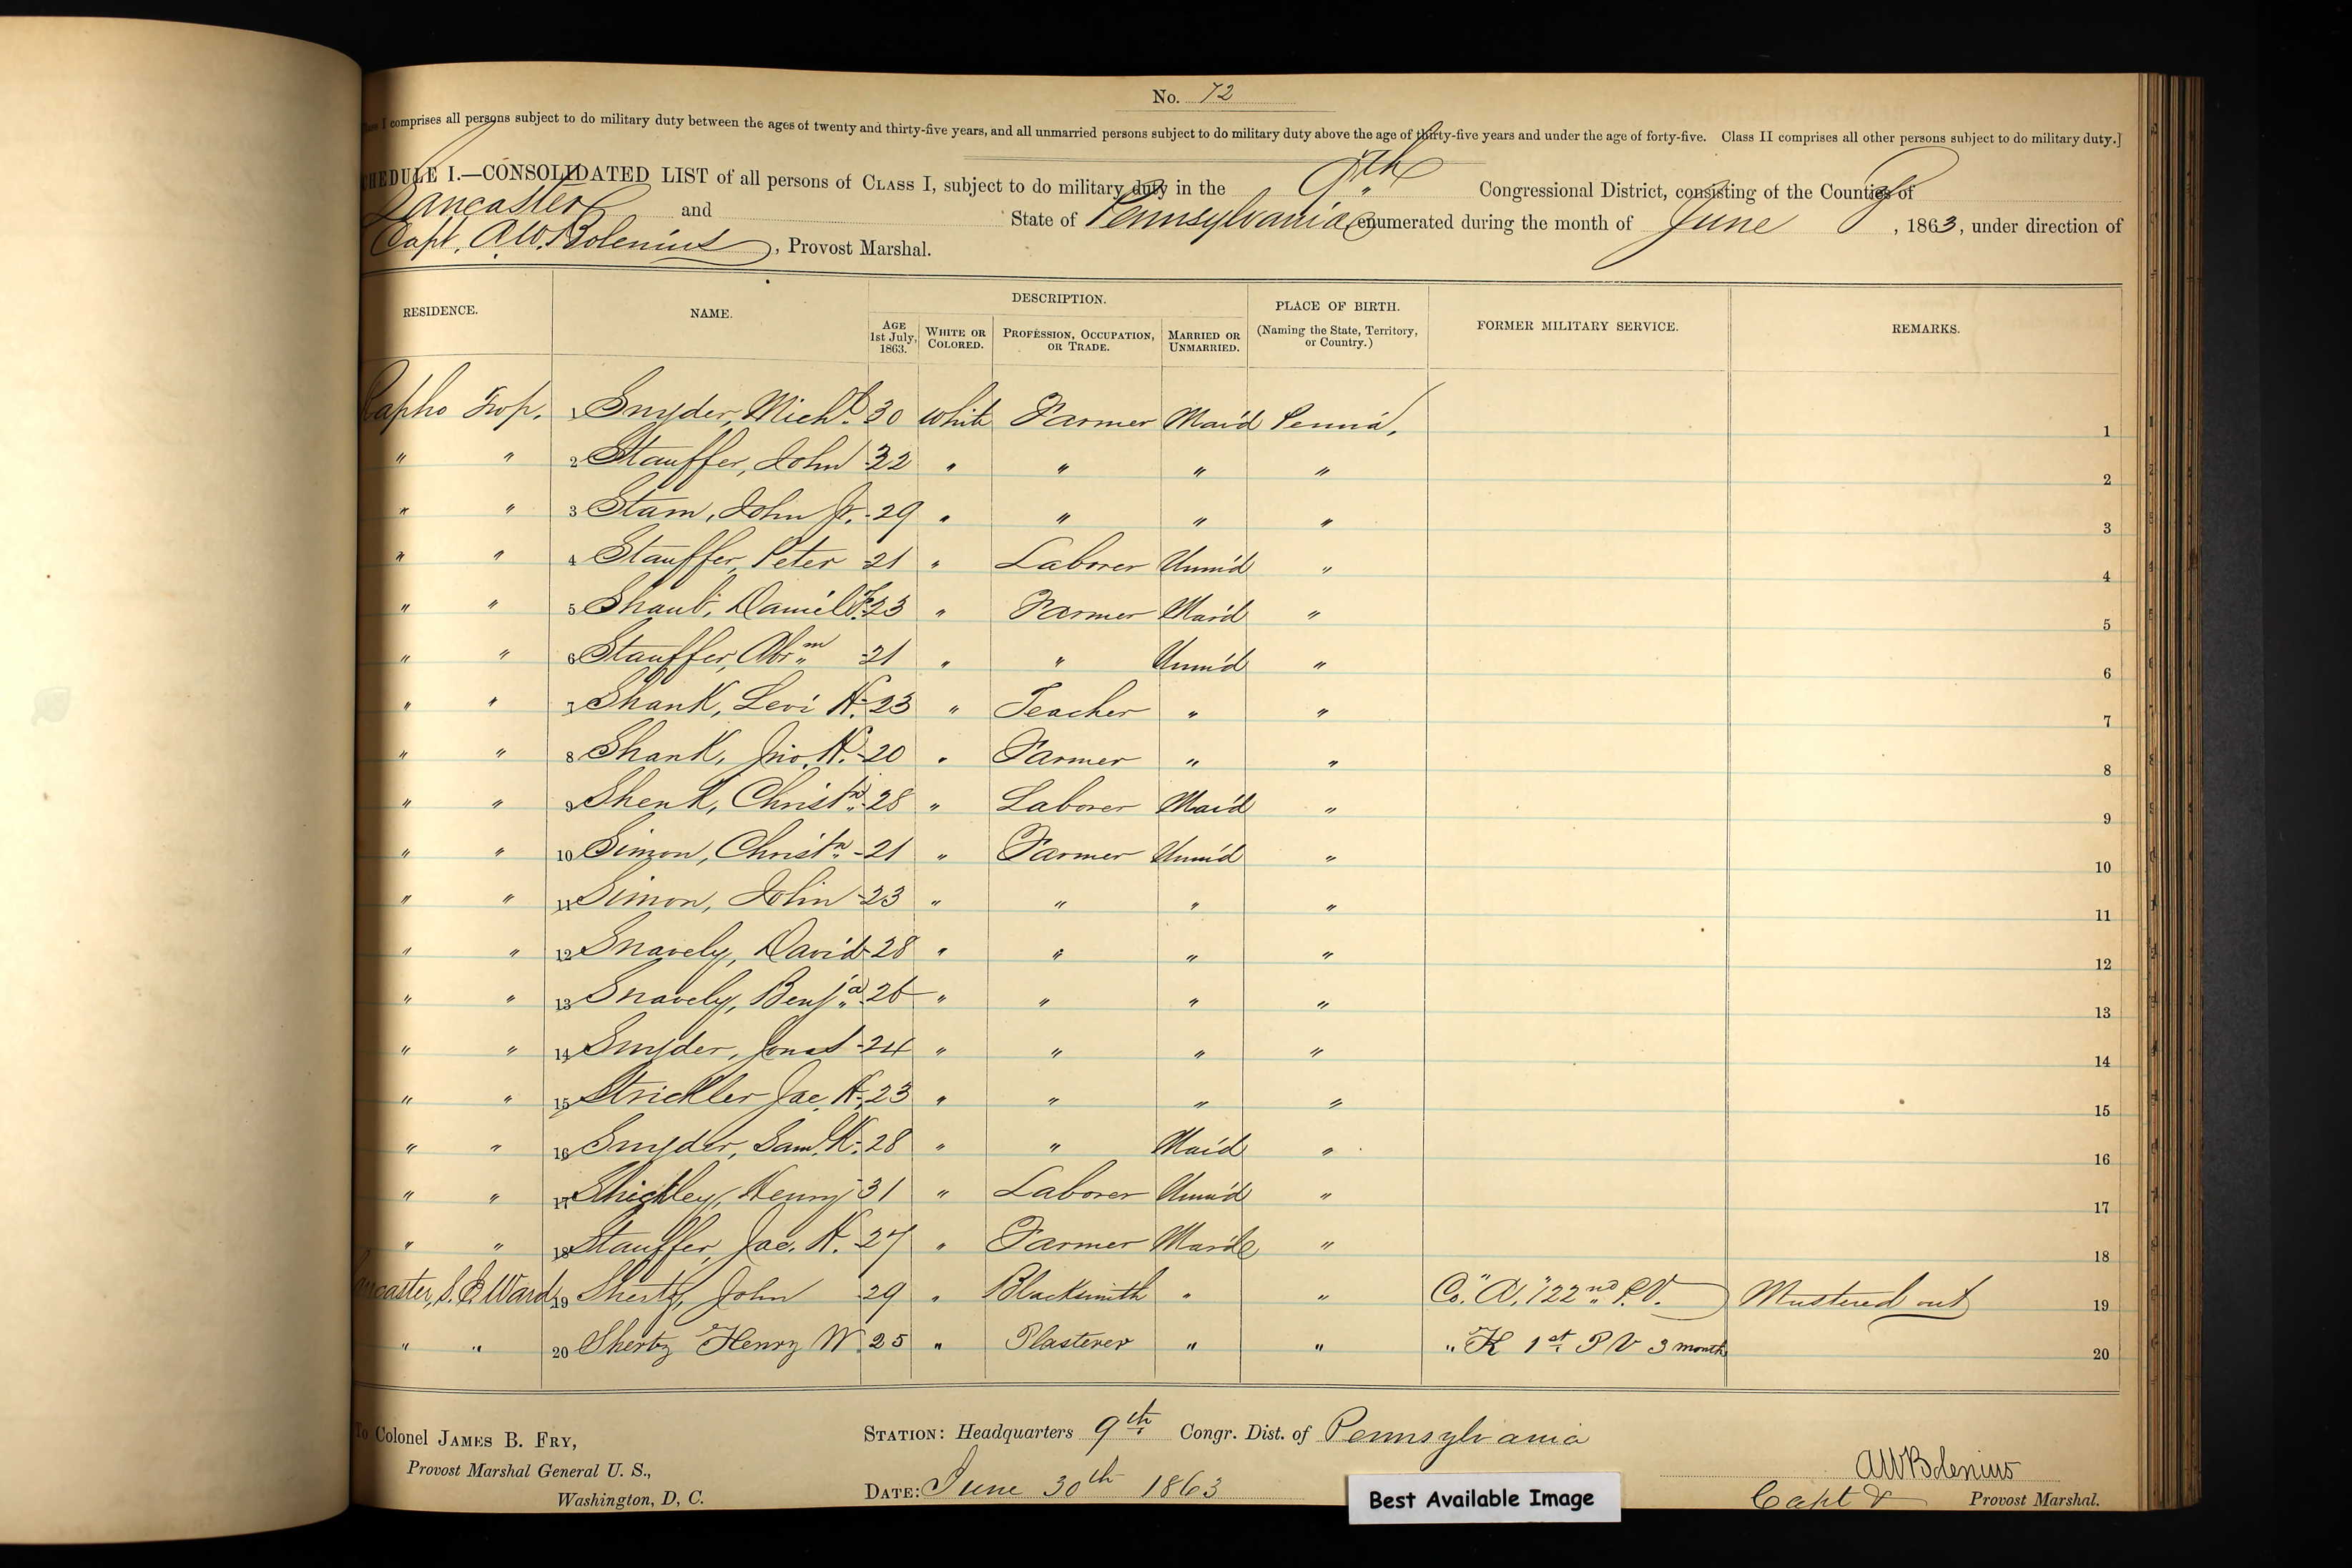 No. 72
I comprises all persons subject to do military duty between the ages of twenty and thirty-five years, and all unmarried persons subject to do military duty above the age of thirty-five years and under the age of forty-five. Class II comprises all other persons subject to do military duty.]
HEDULE I.—CONSOLIDATED LIST of all persons of CLASS I, subject to do military duty in the 9th Congressional District, consisting of the Counties of
Lancaster and State of Pennsylvania enumerated during the month of June, 1863, under direction of
Capt. A.W. Bolenius, Provost Marshal.
RESIDENCE. NAME. DESCRIPTION. PLACE OF BIRTH. (Naming the State, Territory, or Country.) FORMER MILITARY SERVICE. REMARKS.
AGE 1st July, 1863. WHITE OR COLORED. PROFESSION, OCCUPATION, OR TRADE. MARRIED OR UNMARRIED.
Rapho Twp. 1 Snyder, Michl. 30 White Farmer Mar'd Penna. 1
" " 2 Stauffer, John 32 " " " " 2
" " 3 Stam, John Jr. 29 " " " " 3
" " 4 Stauffer, Peter 21 " Laborer Unm'd " 4
" " 5 Shaub, Daniel 23 " Farmer Mar'd " 5
" " 6 Stauffer, Abrm 21 " " Unm'd " 6
" " 7 Shank, Levi H. 23 " Teacher " " 7
" " 8 Shank, Jno. H. 20 " Farmer " " 8
" " 9 Shenk, Christn. 28 " Laborer Mar'd " 9
" " 10 Simon, Christn. 21 " Farmer Unm'd " 10
" " 11 Simon, John 23 " " " " 11
" " 12 Snavely, David 28 " " " " 12
" " 13 Snavely, Benja. 26 " " " " 13
" " 14 Snyder, Jonas 24 " " " " 14
" " 15 Strickler Jac. H. 23 " " " " 15
" " 16 Snyder, Saml. K. 28 " " Mar'd " 16
" " 17 Henry 31 " Laborer Unm'd " 17
" " 18 Stauffer, Jac. H. 27 " Farmer Mar'd " 18
ncaster, S.E. Ward 19 Shertz, John 29 " Blacksmith " " Co. "A," 122nd P.V. Mustered out 19
" " 20 Shertz Henry W. 25 " Plasterer " " " K 1st P V 3 month 20
To Colonel JAMES B. FRY,
Provost Marshal General U. S.,
Washington, D, C.
STATION: Headquarters 9th Congr. Dist. of Pennsylvania
DATE: June 30th 1863
AW Bolenius
Capt & Provost Marshal.
Best Available Image